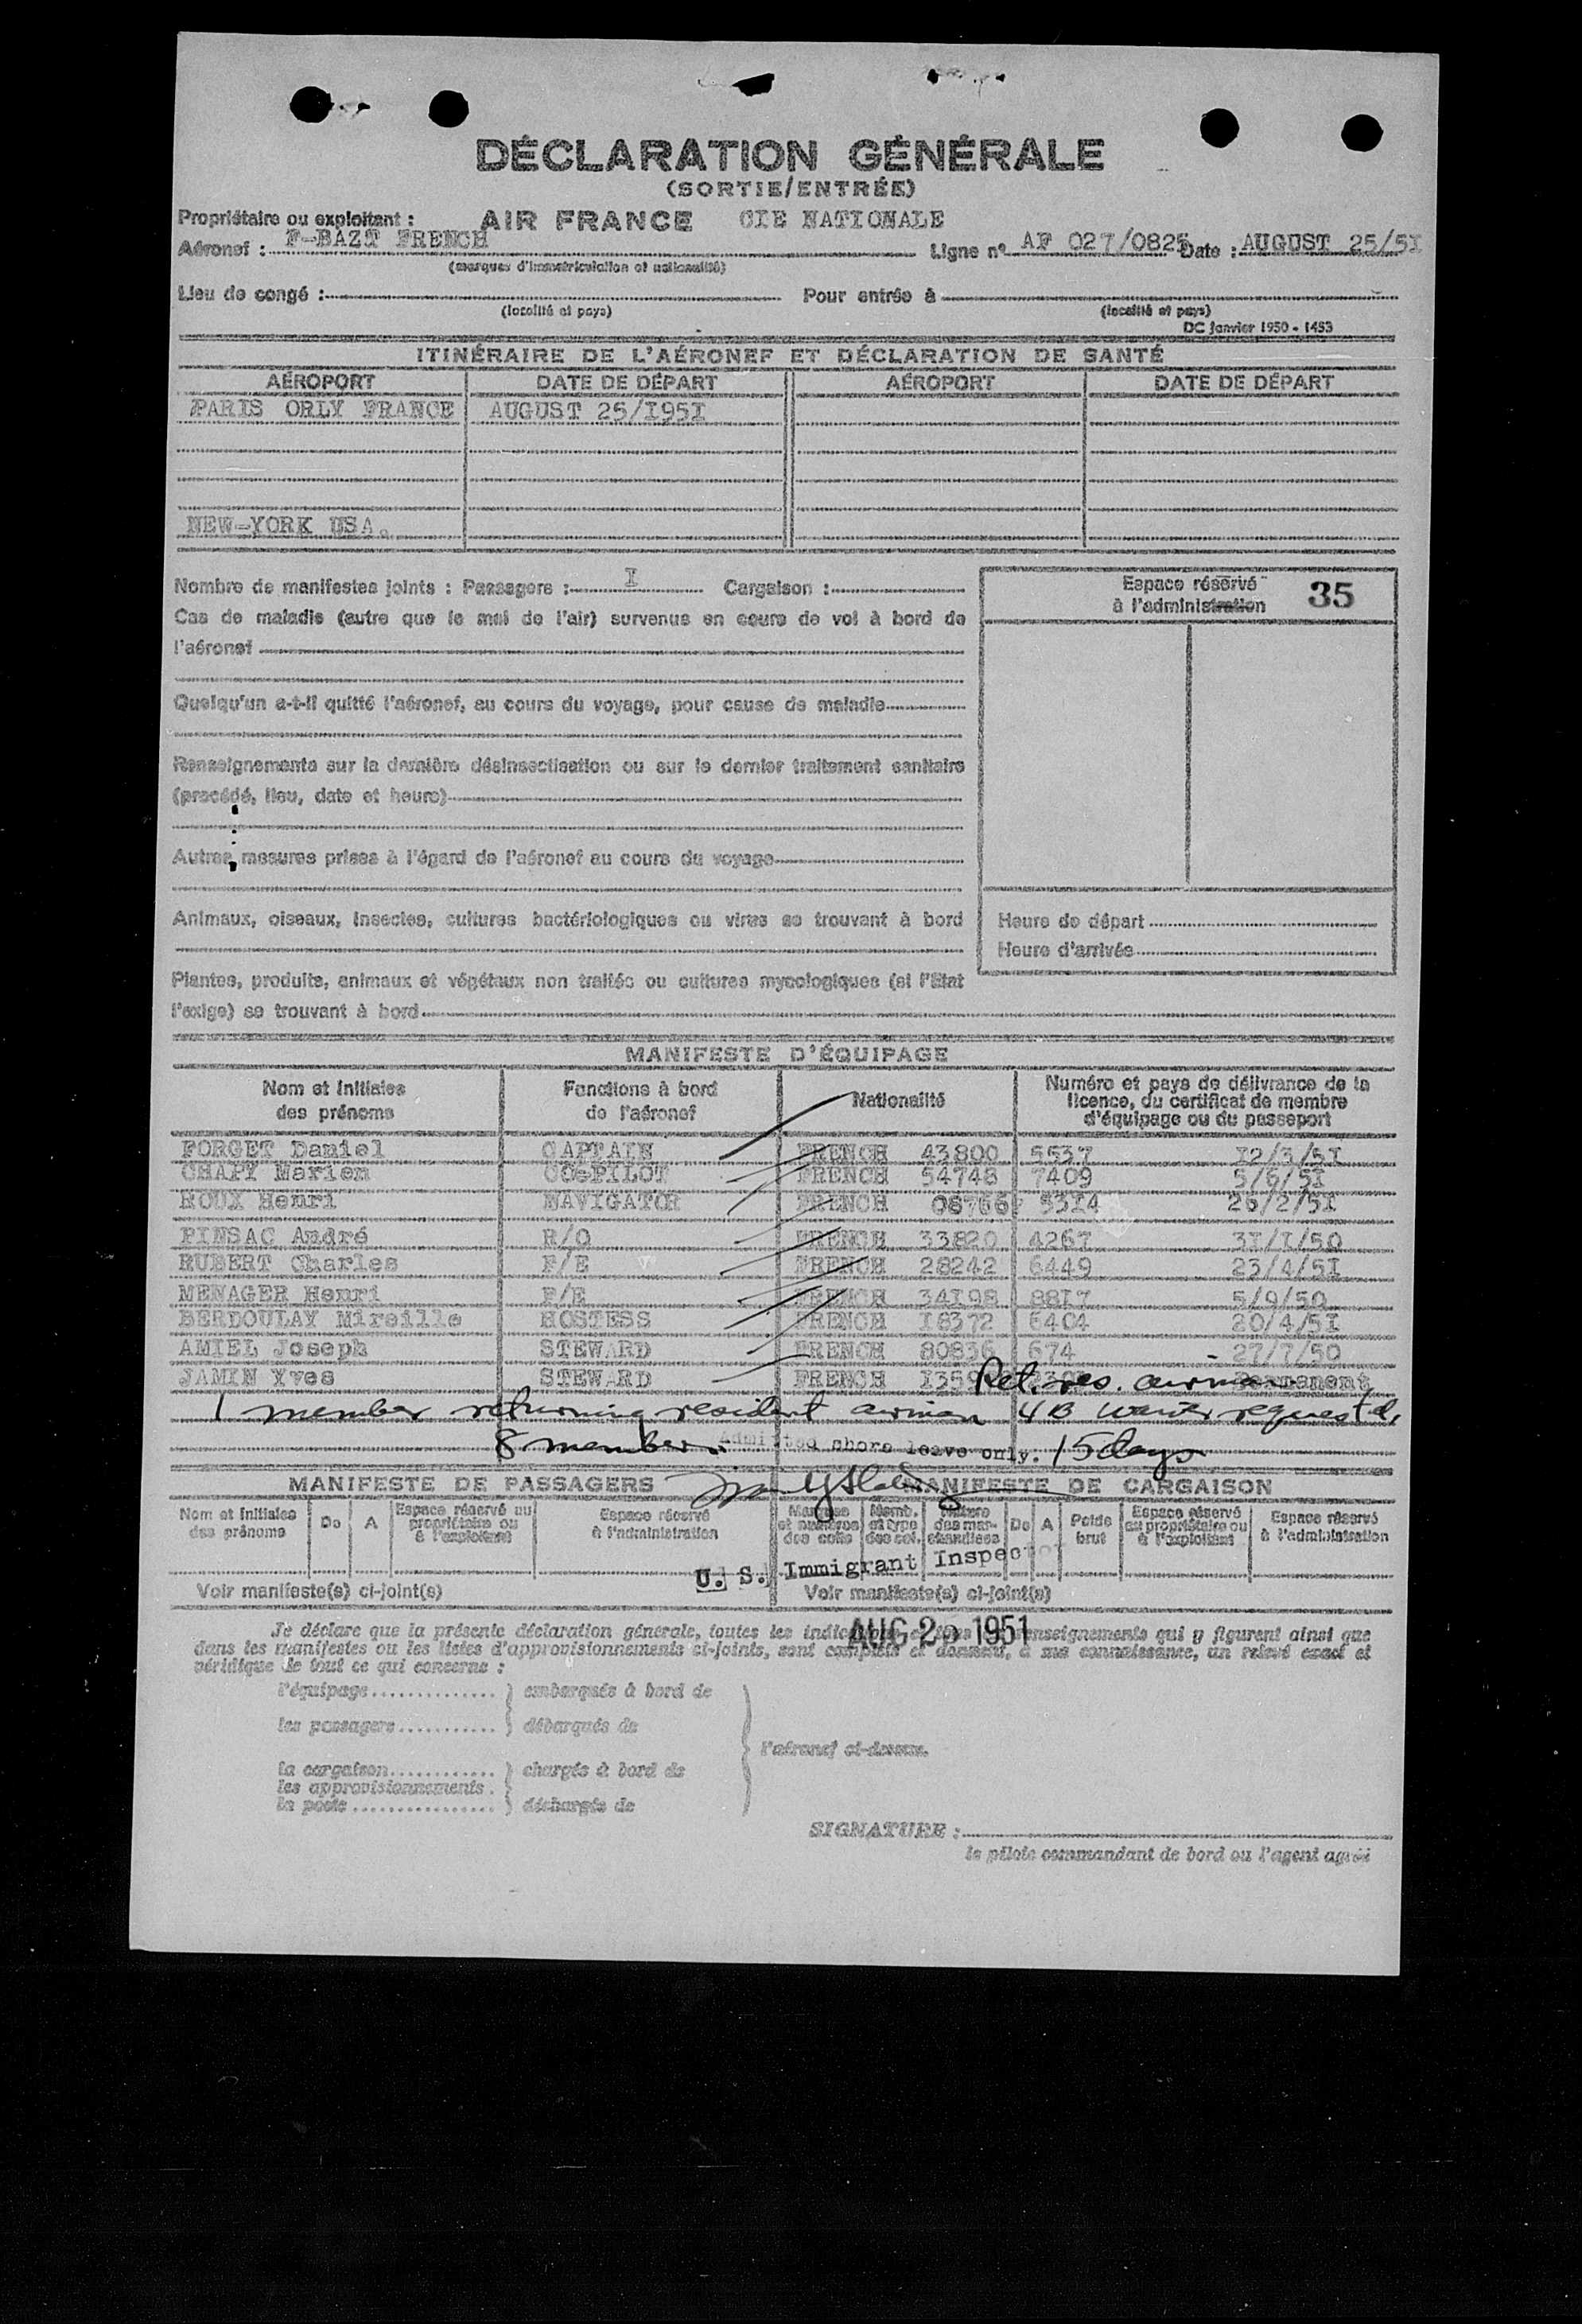 DÉCLARATION GÉNÉRALE
(SORTIE/ENTRÉE)
Propriétaire ou exploitant : AIR FRANCE CIE NATIONALE
Aéronef : F-BAZT FRENCH Ligne n° AF 027/0825 Date : AUGUST 25/5I
(marques d'immatriculation et nationalité)
Lieu de congé : Pour entrée à
(localité et pays) (localité et pays)
DC Janvier 1950 - 1453
ITINÉRAIRE DE L'AÉRONEF ET DÉCLARATION DE SANTÉ
AÉROPORT DATE DE DÉPART AÉROPORT DATE DE DÉPART
PARIS ORLY FRANCE AUGUST 25/I95I
NEW-YORK USA.
Nombre de manifestes joints : Passagers : I Cargaison :
Cas de maladie (autre que le mal de l'air) survenus en cours de vol à bord de
l'aéronef
Quelqu'un a-t-il quitté l'aéronef, au cours du voyage, pour cause de maladie
Renseignements sur la dernière désinsectisation ou sur le dernier traitement sanitaire
(procédé, lieu, date et heure)
Autres mesures prises à l'égard de l'aéronef au cours du voyage
Animaux, oiseaux, insectes, cultures bactériologiques ou virus se trouvant à bord
Plantes, produits, animaux et végétaux non traités ou cultures mycologiques (si l'Etat
l'exige) se trouvant à bord
Espace réservé
à l'administration 35
Heure de départ
Heure d'arrivée
MANIFESTE D'ÉQUIPAGE
Nom et initiales des prénoms Fonctions à bord de l'aéronef Nationalité Numéro et pays de délivrance de la licence, du certificat de membre d'équipage ou du passeport
FORGET Daniel CAPTAIN FRENCH 43800 5537 I2/3/5I
CHAPY Marien CO-PILOT FRENCH 54748 7409 5/6/5I
ROUX Henri NAVIGATOR FRENCH 08766 53I4 26/2/5I
PINSAC André R/O FRENCH 33820 4267 3I/I/50
HUBERT Charles F/E FRENCH 28242 6449 23/4/5I
MENAGER Henri F/E FRENCH 34I98 88I7 5/9/50
BERDOULAY Mireille HOSTESS FRENCH I8372 6404 20/4/5I
AMIEL Joseph STEWARD FRENCH 80836 674 27/7/50
JAMIN Yves STEWARD FRENCH I359 Ret. res. airman Permanent
1 member returning resident airman 4B waiver request'd,
8 members Admitted shore leave only. 15 days
MANIFESTE DE PASSAGERS MANIFESTE DE CARGAISON
Nom et initiales des prénoms De A Espace réservé au propriétaire ou à l'exploitant Espace réservé à l'administration Marques et numéros des colis Nomb. et type des col. Nature des marchandises De A Poids brut Espace réservé au propriétaire ou à l'exploitant Espace réservé à l'administration
U. S. Immigrant Inspector
Voir manifeste(s) ci-joint(s) Voir manifeste(s) ci-joint(s)
AUG 25 1951
Je déclare que la présente déclaration générale, toutes les renseignements qui y figurent ainsi que
dans les manifestes ou les listes d'approvisionnements ci-joints, sont complets et donnent, à ma connaissance, un relevé exact et
véridique de tout ce qui concerne :
l'équipage } embarqués à bord de
les passagers } débarqués de
l'aéronef ci-dessus.
la cargaison } chargés à bord de
les approvisionnements
la poste } déchargés de
SIGNATURE :
le pilote commandant de bord ou l'agent agréé